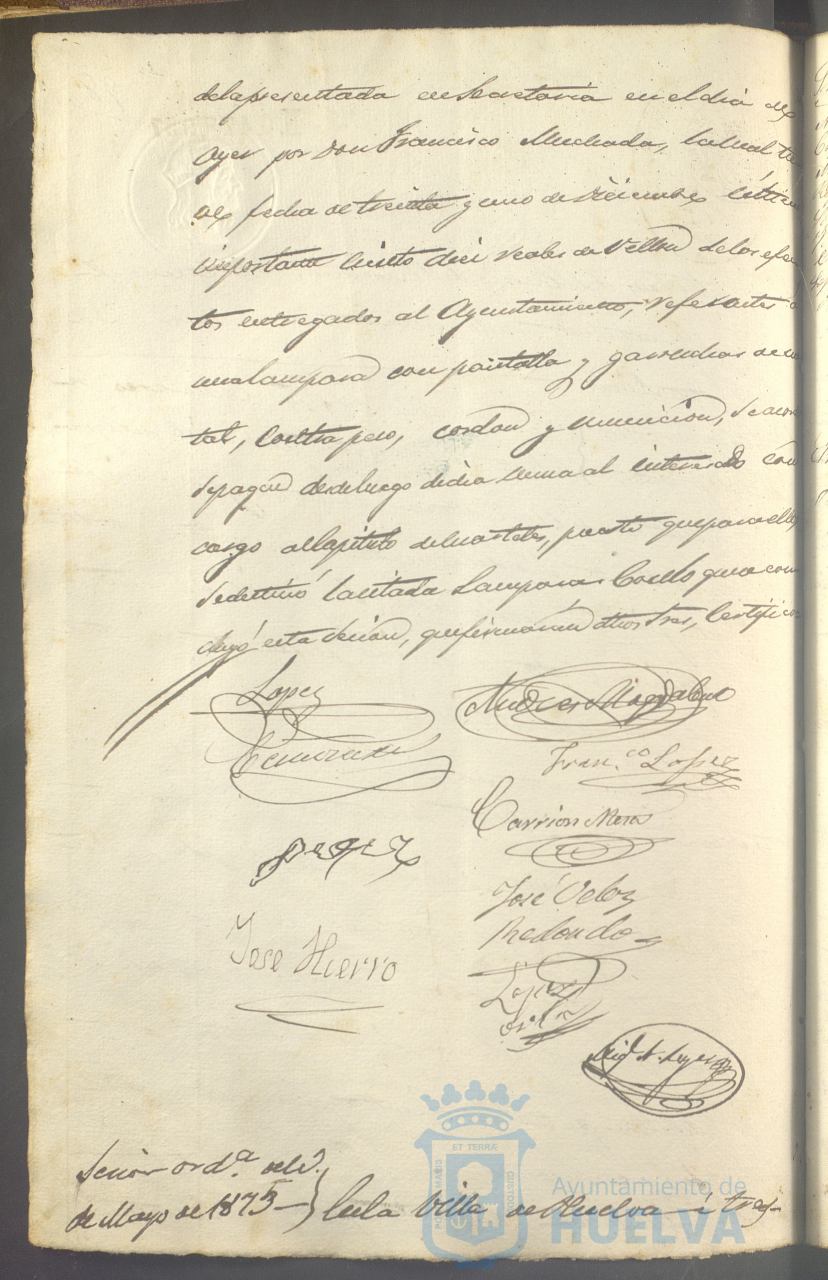 de la presentada en Secretaría en el día de
Ayer por Don Francisco Machado, la cual
de fecha de treinta y uno de Diciembre último
importante ciento diez reales de Vellón de los efec
tos entregados al Ayuntamiento, referentes a
una lampara con pantalla y garruchas de
tal, contrapeso, cordon y munición, se acor
se pague desde luego dicha suma al interesado con
cargo al Capitulo de Cuarteles, puesto que para ellos
se destinó la citada Lampara. Con lo que se con
cluyó esta sesion, que firmarán dichos Sres, Certifico
Lopez
Andres Magdaleno
Franco Lopez
Carrion Mora
Perez
José Velez
Redondo
Jose Hierro
Lopez
Sesion orda del
de Mayo de 1875
En la Villa de Huelva á tres
ET TERRÆ
PORTUS MARIS
CUSTODIA
Ayuntamiento de
HUELVA